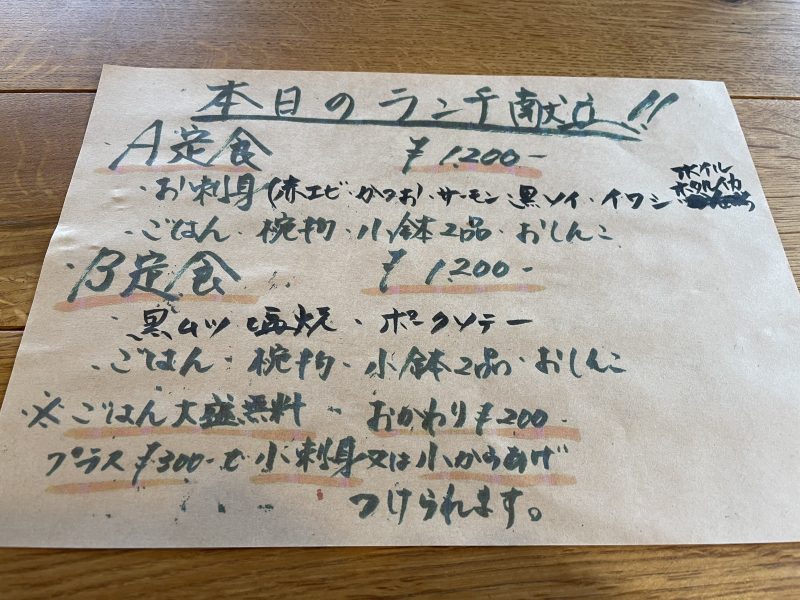 本日のランチ献立!!
A定食 ¥1,200-
・お刺身(赤エビ・かつお・サーモン 黒ソイ・イワシ ボイル ホタルイカ
・ごはん・椀物・小鉢2品・おしんこ
・B定食 ¥1,200-
・黒ムツ塩焼・ポークソテー
・ごはん・椀物・小鉢2品・おしんこ
※ごはん大盛無料 - おかわり¥200-
プラス¥300-で小刺身又は小からあげ
つけられます。